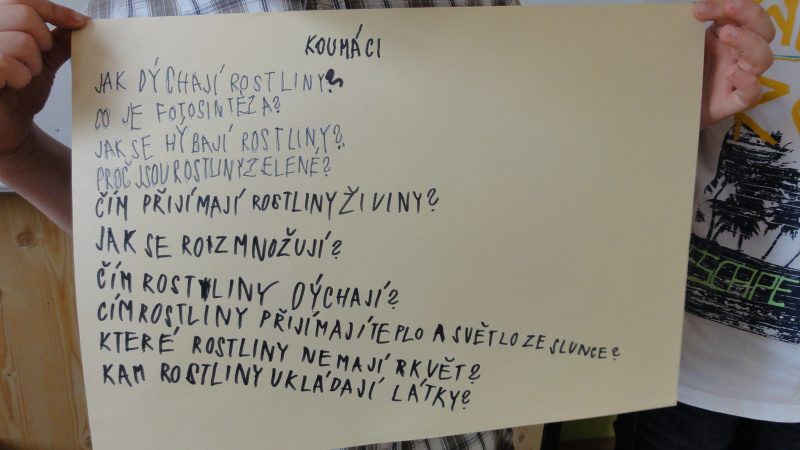 KOUMÁCI
JAK DÝCHAJÍ ROSTLINY?
CO JE FOTOSINTÉZA?
JAK SE HÝBAJÍ ROSTLINY?
PROČ JSOU ROSTLINY ZELENÉ?
ČÍM PŘIJÍMAJÍ ROSTLINY ŽIVINY?
JAK SE ROZMNOŽUJÍ?
ČÍM ROSTLINY DÝCHAJÍ?
CÍM ROSTLINY PŘIJÍMAJÍ TEPLO A SVĚTLO ZE SLUNCE?
KTERÉ ROSTLINY NEMAJÍ KVĚT?
KAM ROSTLINY UKLÁDAJÍ LÁTKY?
ESCAPE